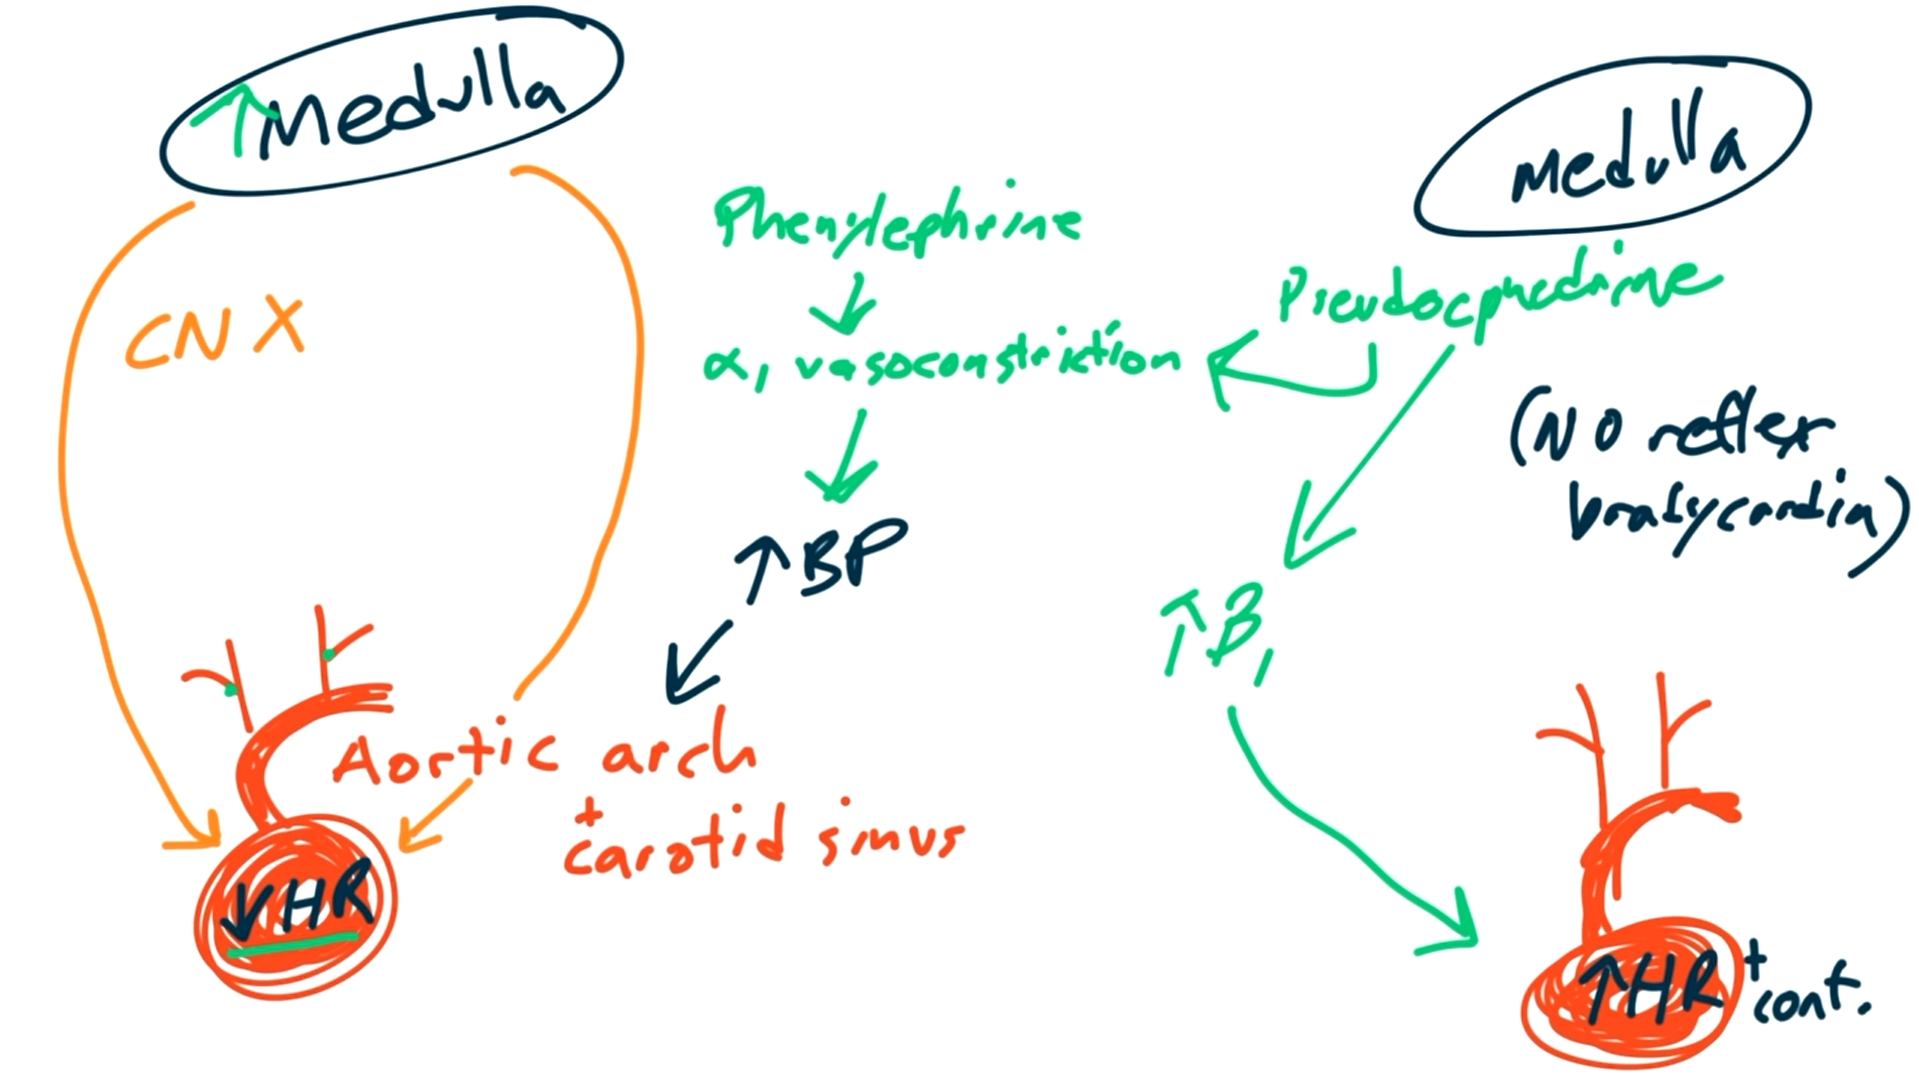 ↑Medulla
CN X
Phenylephrine
α1 vasoconstriction
↑BP
Aortic arch
+
carotid sinus
↓HR
medulla
Pseudoephedrine
(No reflex
bradycardia)
↑B1
↑HR +
cont.